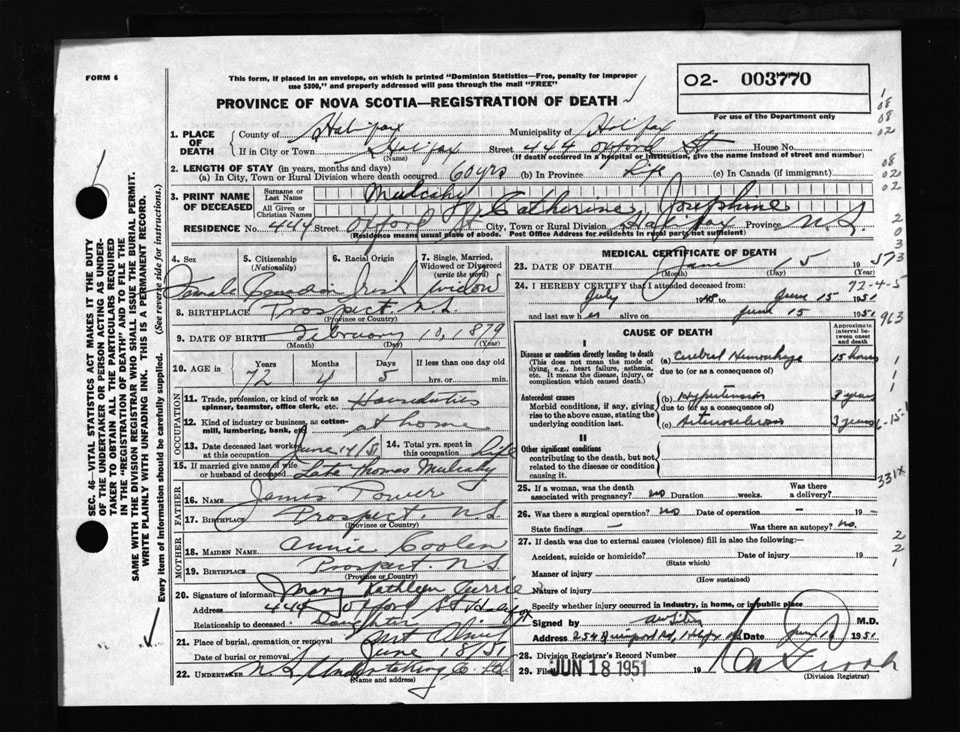 FORM 6
This form, if placed in an envelope, on which is printed "Dominion Statistics—Free, penalty for improper
use $300," and properly addressed will pass through the mail "FREE"
PROVINCE OF NOVA SCOTIA—REGISTRATION OF DEATH
02- 003770
For use of the Department only
1. PLACE OF DEATH County of Halifax Municipality of Halifax
If in City or Town Halifax (Name) Street 444 Oxford St House No.
(If death occurred in a hospital or institution, give the name instead of street and number)
2. LENGTH OF STAY (in years, months and days)
(a) In City, Town or Rural Division where death occurred 60 yrs (b) In Province Life (c) In Canada (if immigrant)
3. PRINT NAME OF DECEASED Surname or Last Name Mulcahy
All Given or Christian Names Catherine Josephine
RESIDENCE No. 444 Street Oxford St City, Town or Rural Division Halifax Province N.S.
(Residence means usual place of abode. Post Office Address for residents in rural parts not sufficient)
4. Sex 5. Citizenship (Nationality) 6. Racial Origin 7. Single, Married, Widowed or Divorced (write the word)
Female Canadian Irish Widow
8. BIRTHPLACE Prospect, N.S.
(Province or Country)
9. DATE OF BIRTH February 10, 1879
(Month) (Day) (Year)
10. AGE in Years Months Days If less than one day old
72 4 5 hrs. or min.
OCCUPATION
11. Trade, profession, or kind of work as spinner, teamster, office clerk, etc. Housduties
12. Kind of industry or business, as cotton-mill, lumbering, bank, etc. at home
13. Date deceased last worked at this occupation June 14/51 14. Total yrs. spent in this occupation life
15. If married give name of wife or husband of deceased Late Thomas Mulcahy
FATHER
16. NAME James Power
17. BIRTHPLACE Prospect, N.S.
(Province or Country)
MOTHER
18. MAIDEN NAME Annie Coolen
19. BIRTHPLACE Prospect. N.S
(Province or Country)
20. Signature of informant Mary Kathleen Currie
Address 444 Oxford St Halifax
Relationship to deceased Daughter
21. Place of burial, cremation or removal
Date of burial or removal June 18/51
22. UNDERTAKER N.S. Undertaking Co. Ltd
(Name and address)
MEDICAL CERTIFICATE OF DEATH
23. DATE OF DEATH June 15 1951
(Month) (Day) (Year)
24. I HEREBY CERTIFY that I attended deceased from:
July to June 15 1951
and last saw her alive on June 15 1951
CAUSE OF DEATH
Approximate interval between onset and death
I
Disease or condition directly leading to death (a) Cerebral Hemorrhage 15 hours
(This does not mean the mode of dying, e.g., heart failure, asthenia, etc. It means the disease, injury, or complication which caused death.)
due to (or as a consequence of)
Antecedent causes (b) Hypertension 3 years
Morbid conditions, if any, giving rise to the above cause, stating the underlying condition last
due to (or as a consequence of)
(c) Arteriosclerosis 3 years
II
Other significant conditions
contributing to the death, but not related to the disease or condition causing it
25. If a woman, was the death associated with pregnancy? no Duration weeks. Was there a delivery?
26. Was there a surgical operation? no Date of operation — 19 —
State findings — Was there an autopsy? no.
27. If death was due to external causes (violence) fill in also the following:—
Accident, suicide or homicide? (State which) Date of injury 19
Manner of injury (How sustained)
Nature of injury
Specify whether injury occurred in industry, in home, or in public place
Signed by M.D.
Address 254 Quinpool Rd, Hlfx Date June 1951
28. Division Registrar's Record Number
29. Filed JUN 18 1951 19
(Division Registrar)
SEC. 46—VITAL STATISTICS ACT MAKES IT THE DUTY
OF THE UNDERTAKER OR PERSON ACTING AS UNDER-
TAKER TO OBTAIN ALL THE PARTICULARS REQUIRED
IN THE "REGISTRATION OF DEATH" AND TO FILE THE
SAME WITH THE DIVISION REGISTRAR WHO SHALL ISSUE THE BURIAL PERMIT.
WRITE PLAINLY WITH UNFADING INK. THIS IS A PERMANENT RECORD.
Every item of information should be carefully supplied. (See reverse side for instructions.)
573
72-4-5
963
6-15-1
331X